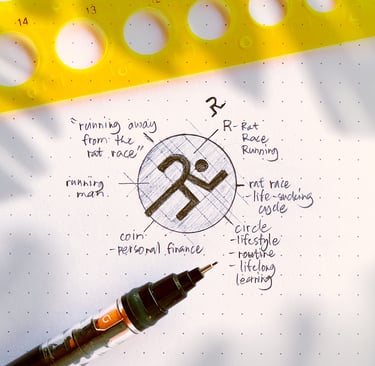 14
13
R
"running away
from the
rat race"
R - Rat
Race
Running
running
man
rat race
- life-sucking
cycle
coin
- personal finance
circle
- lifestyle
- routine
- lifelong
learning